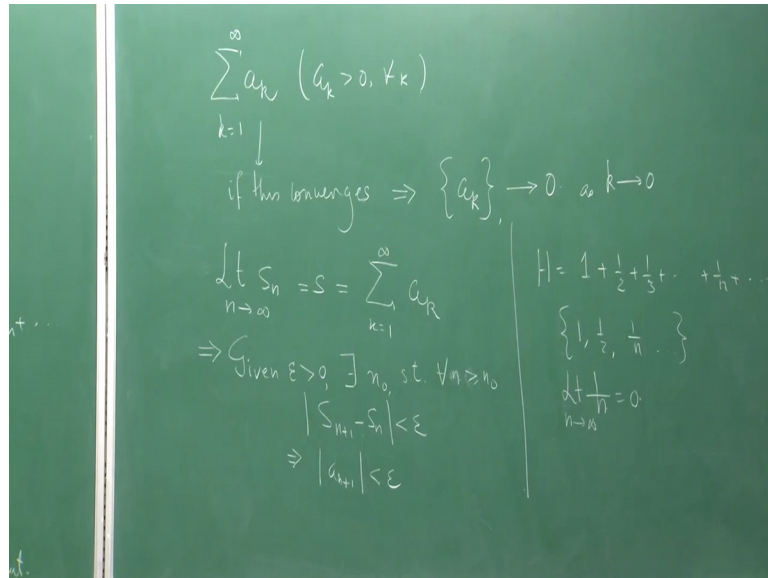 ∞
∑ aₖ (aₖ > 0, ∀ k)
k=1
↓
if this converges ⇒ {aₖ}, → 0. as k → 0
Lt Sₙ = S = ∑ aₖ
n→∞
∞
k=1
⇒ Given ε > 0, ∃ n₀, st. ∀ n ≥ n₀
|Sₙ₊₁ - Sₙ| < ε
⇒ |aₙ₊₁| < ε
H = 1 + 1/2 + 1/3 + .. + 1/n + ...
{1, 1/2, 1/n ...}
Lt 1/n = 0.
n→∞
n + ...